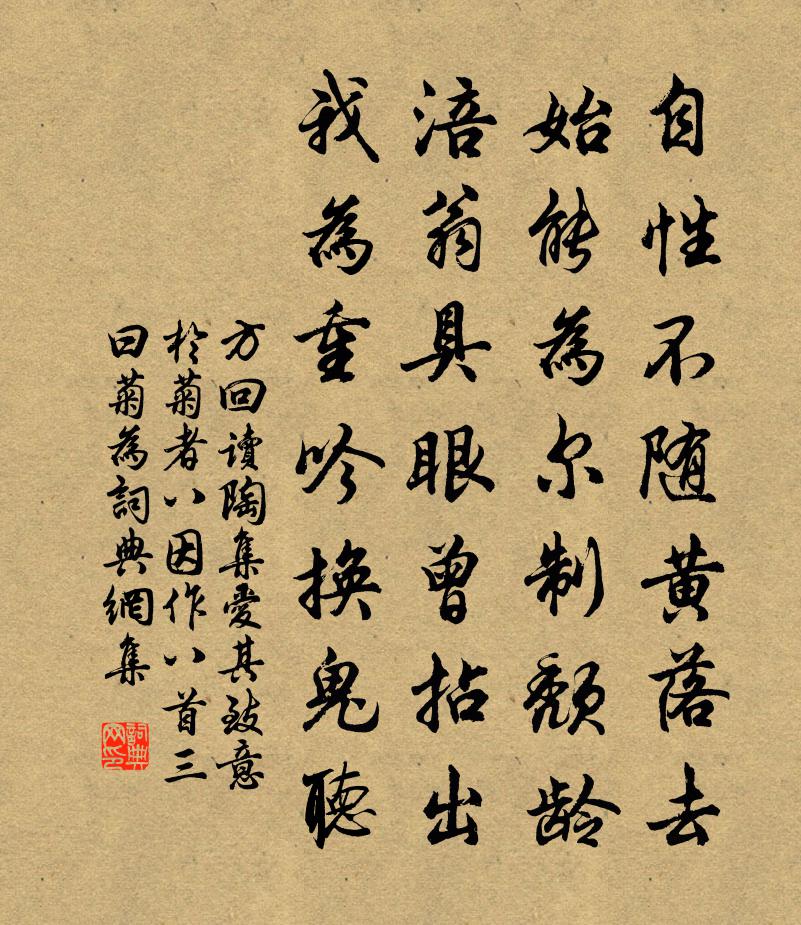 自性不随黄落去
始能為尔制颓龄
涪翁具眼曾拈出
我為重吟换鬼聽
方回讀陶集愛其致意
於菊者八因作八首三
曰菊為詞典網集
詞典網印